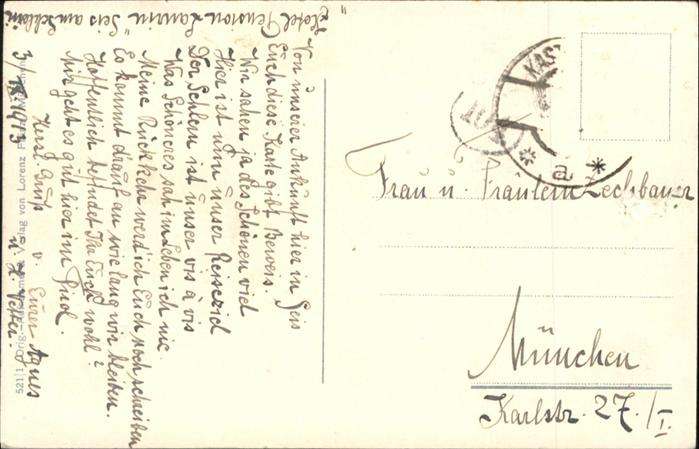 "Hotel Pension Laurin" Seis am Schlern
Von unserer Ankunft hier in Seis
Euch diese Karte gibt Beweis.
Wir sahen ja des Schönen viel
Hier ist nun unser Reiseziel
Der Schlern ist unser vis à vis
Was Schöneres sah im Leben ich nie
Meine Rückkehr werd ich Euch noch schreiben
Es kommt drauf an wie lang wir bleiben.
Hoffentlich befindet Ihr Euch wohl?
Mir geht es gut hier im Tirol.
Herzl. Grüße v. Eurer Agnes
u. X. Vetter.
521/1 Orig.- Verlag von Lorenz
KAST
Frau u. Fräulein Zechbauer
München
Karlstr. 27./I.